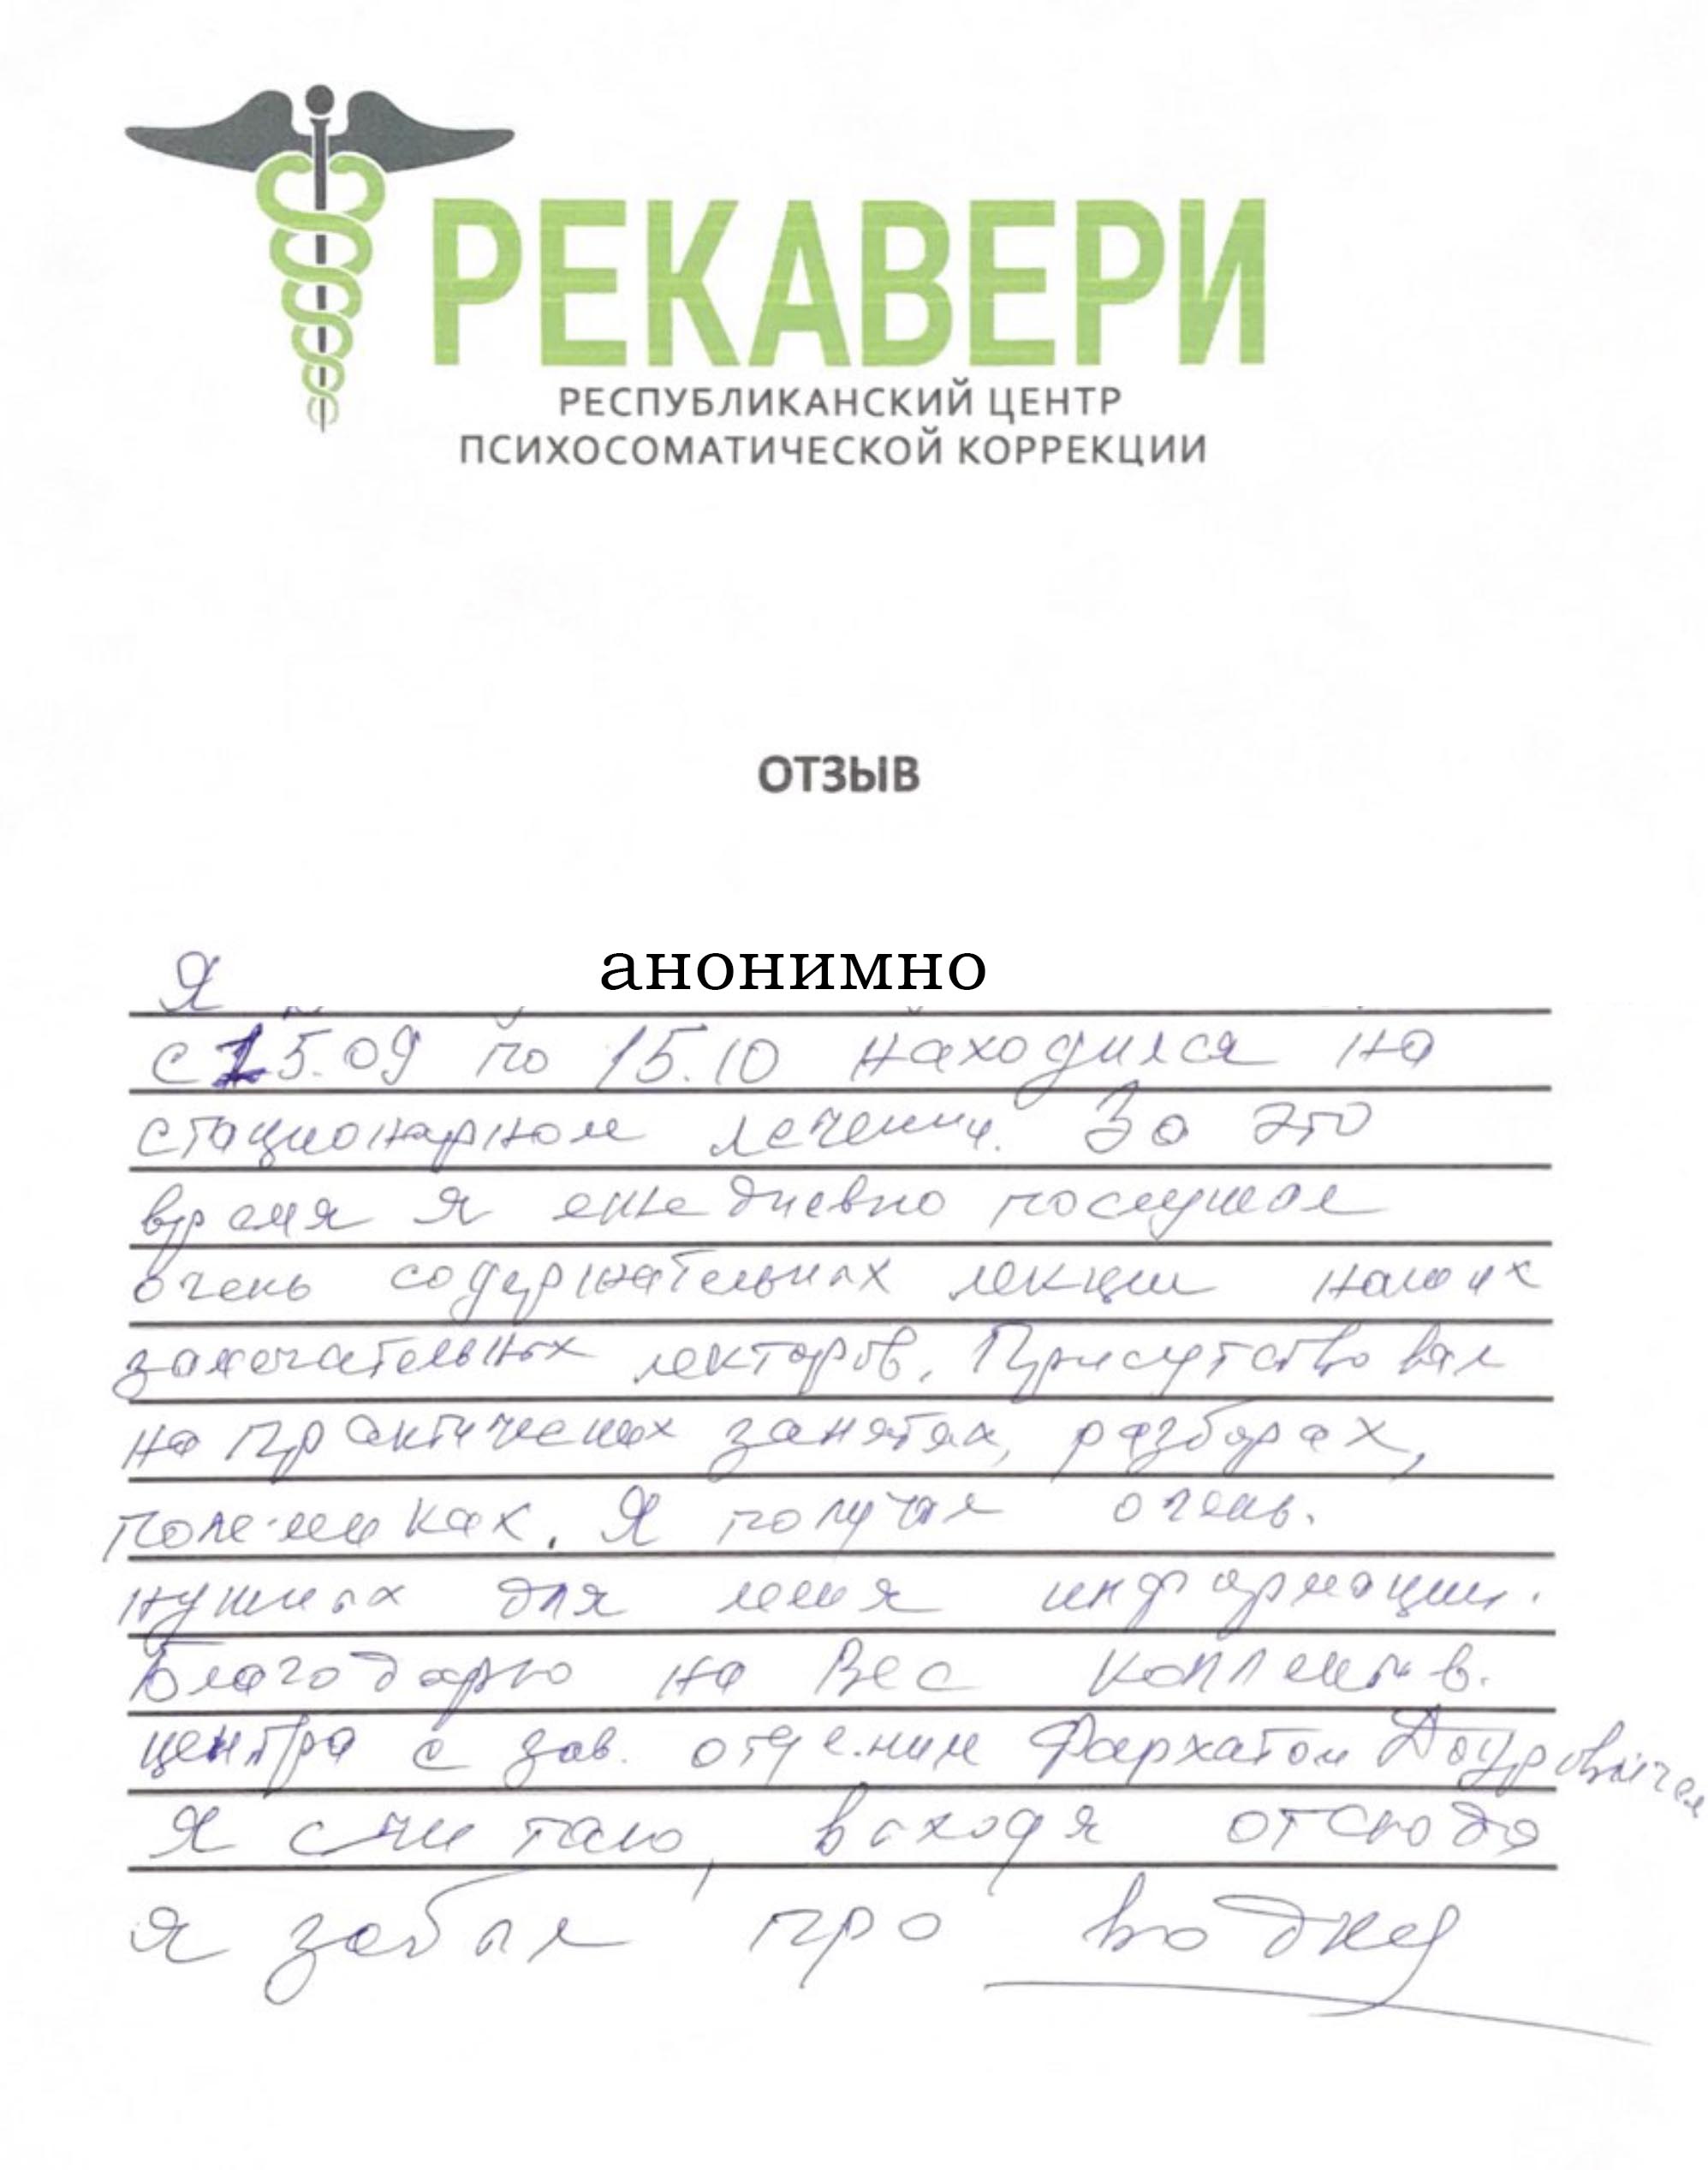 РЕКАВЕРИ
РЕСПУБЛИКАНСКИЙ ЦЕНТР
ПСИХОСОМАТИЧЕСКОЙ КОРРЕКЦИИ
ОТЗЫВ
Я анонимно
с 15.09 по 15.10 находился на
стационарном лечении. За это
время я ежедневно послушал
очень содержательных лекции наших
замечательных лекторов. Присутствовал
на практических занятях, разборах,
полемиках. Я получил очень
нужных для меня информации.
Благодарю на Вес коллектив.
центра с зав. отделения Фархатом Доуровичем
Я считаю, выходя отсюда
я забыл про водку